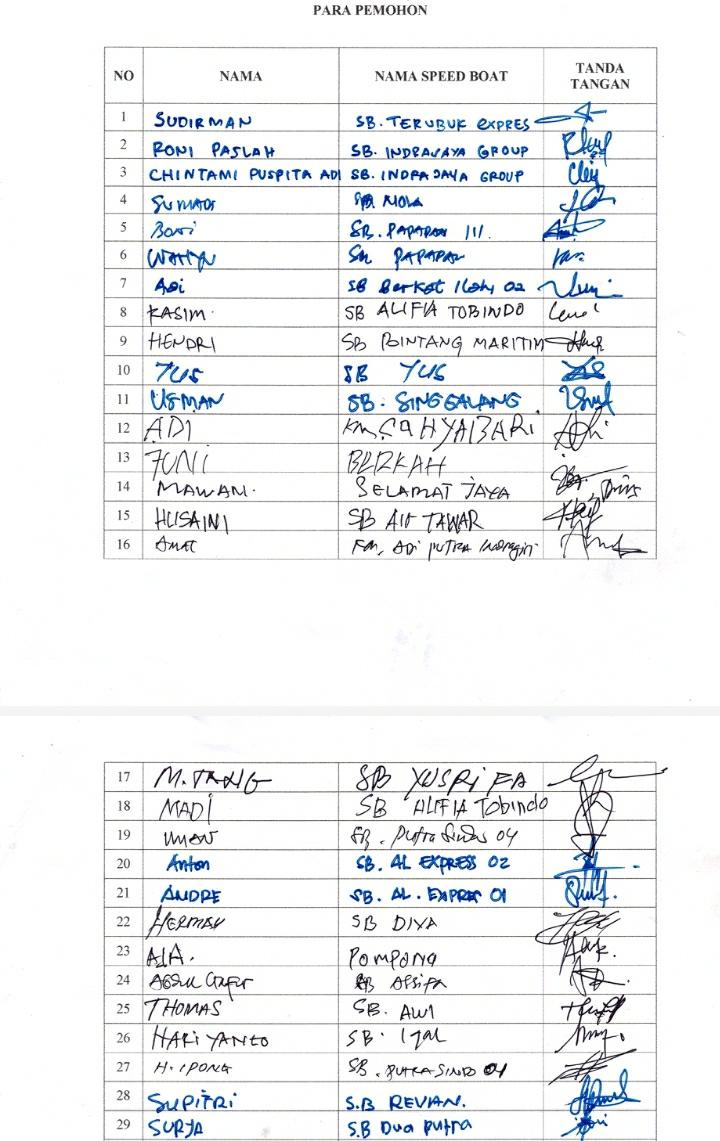 PARA PEMOHON
NO NAMA NAMA SPEED BOAT TANDA TANGAN
1 SUDIRMAN SB. TERUBUK EXPRES
2 RONI PASLAH SB. INDRAJAYA GROUP
3 CHINTAMI PUSPITA ADI SB. INDRAJAYA GROUP
4 SUMADI SB. MOLA
5 SB. PAPADAN III.
6 WAHYU
7 ADI SB Berkat 02
8 KASIM. SB ALIFIA TOBINDO
9 HENDRI SB BINTANG MARITIM
10 YUS SB YUS
11 USMAN SB. SINGGALANG
12 ADI KM. CAHYABARI
13 JUNI BERKAH
14 MAWAN. SELAMAT JAYA
15 HUSAINI SB AIR TAWAR
16 AMAT KM. ADI PUTRA Indragiri
17 M. TANG SB YUSRIFA
18 MADI SB ALIFIA Tobindo
19 IMAN SB. Putra 04
20 Anton SB. AL EXPRESS 02
21 ANDRE SB. AL. EXPRES 01
22 HERMAN SB DIVA
23 POMPONG
24 SB
25 THOMAS SB. AWI
26 HARIYANTO SB.
27 H. IPONG SB. PUTRA SINDO 01
28 SUPITRI S.B REVIAN.
29 SURYA S.B Dua Putra